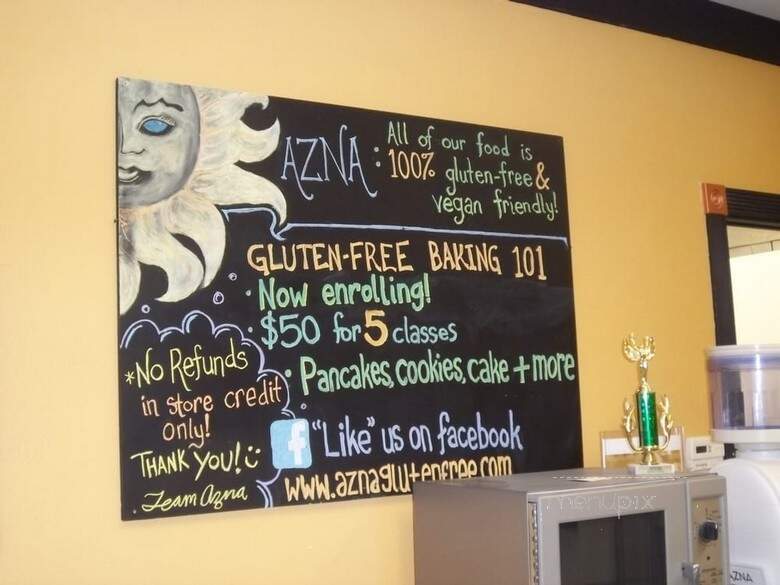 AZNA:
All of our food is
100% gluten-free &
vegan friendly!
GLUTEN-FREE BAKING 101
• Now enrolling!
• $50 for 5 classes
• Pancakes, cookies, cake + more
*No Refunds
in store credit
only!
THANK YOU! :)
Team Azna
f "Like" us on facebook
www.aznaglutenfree.com
menupix
AZNA